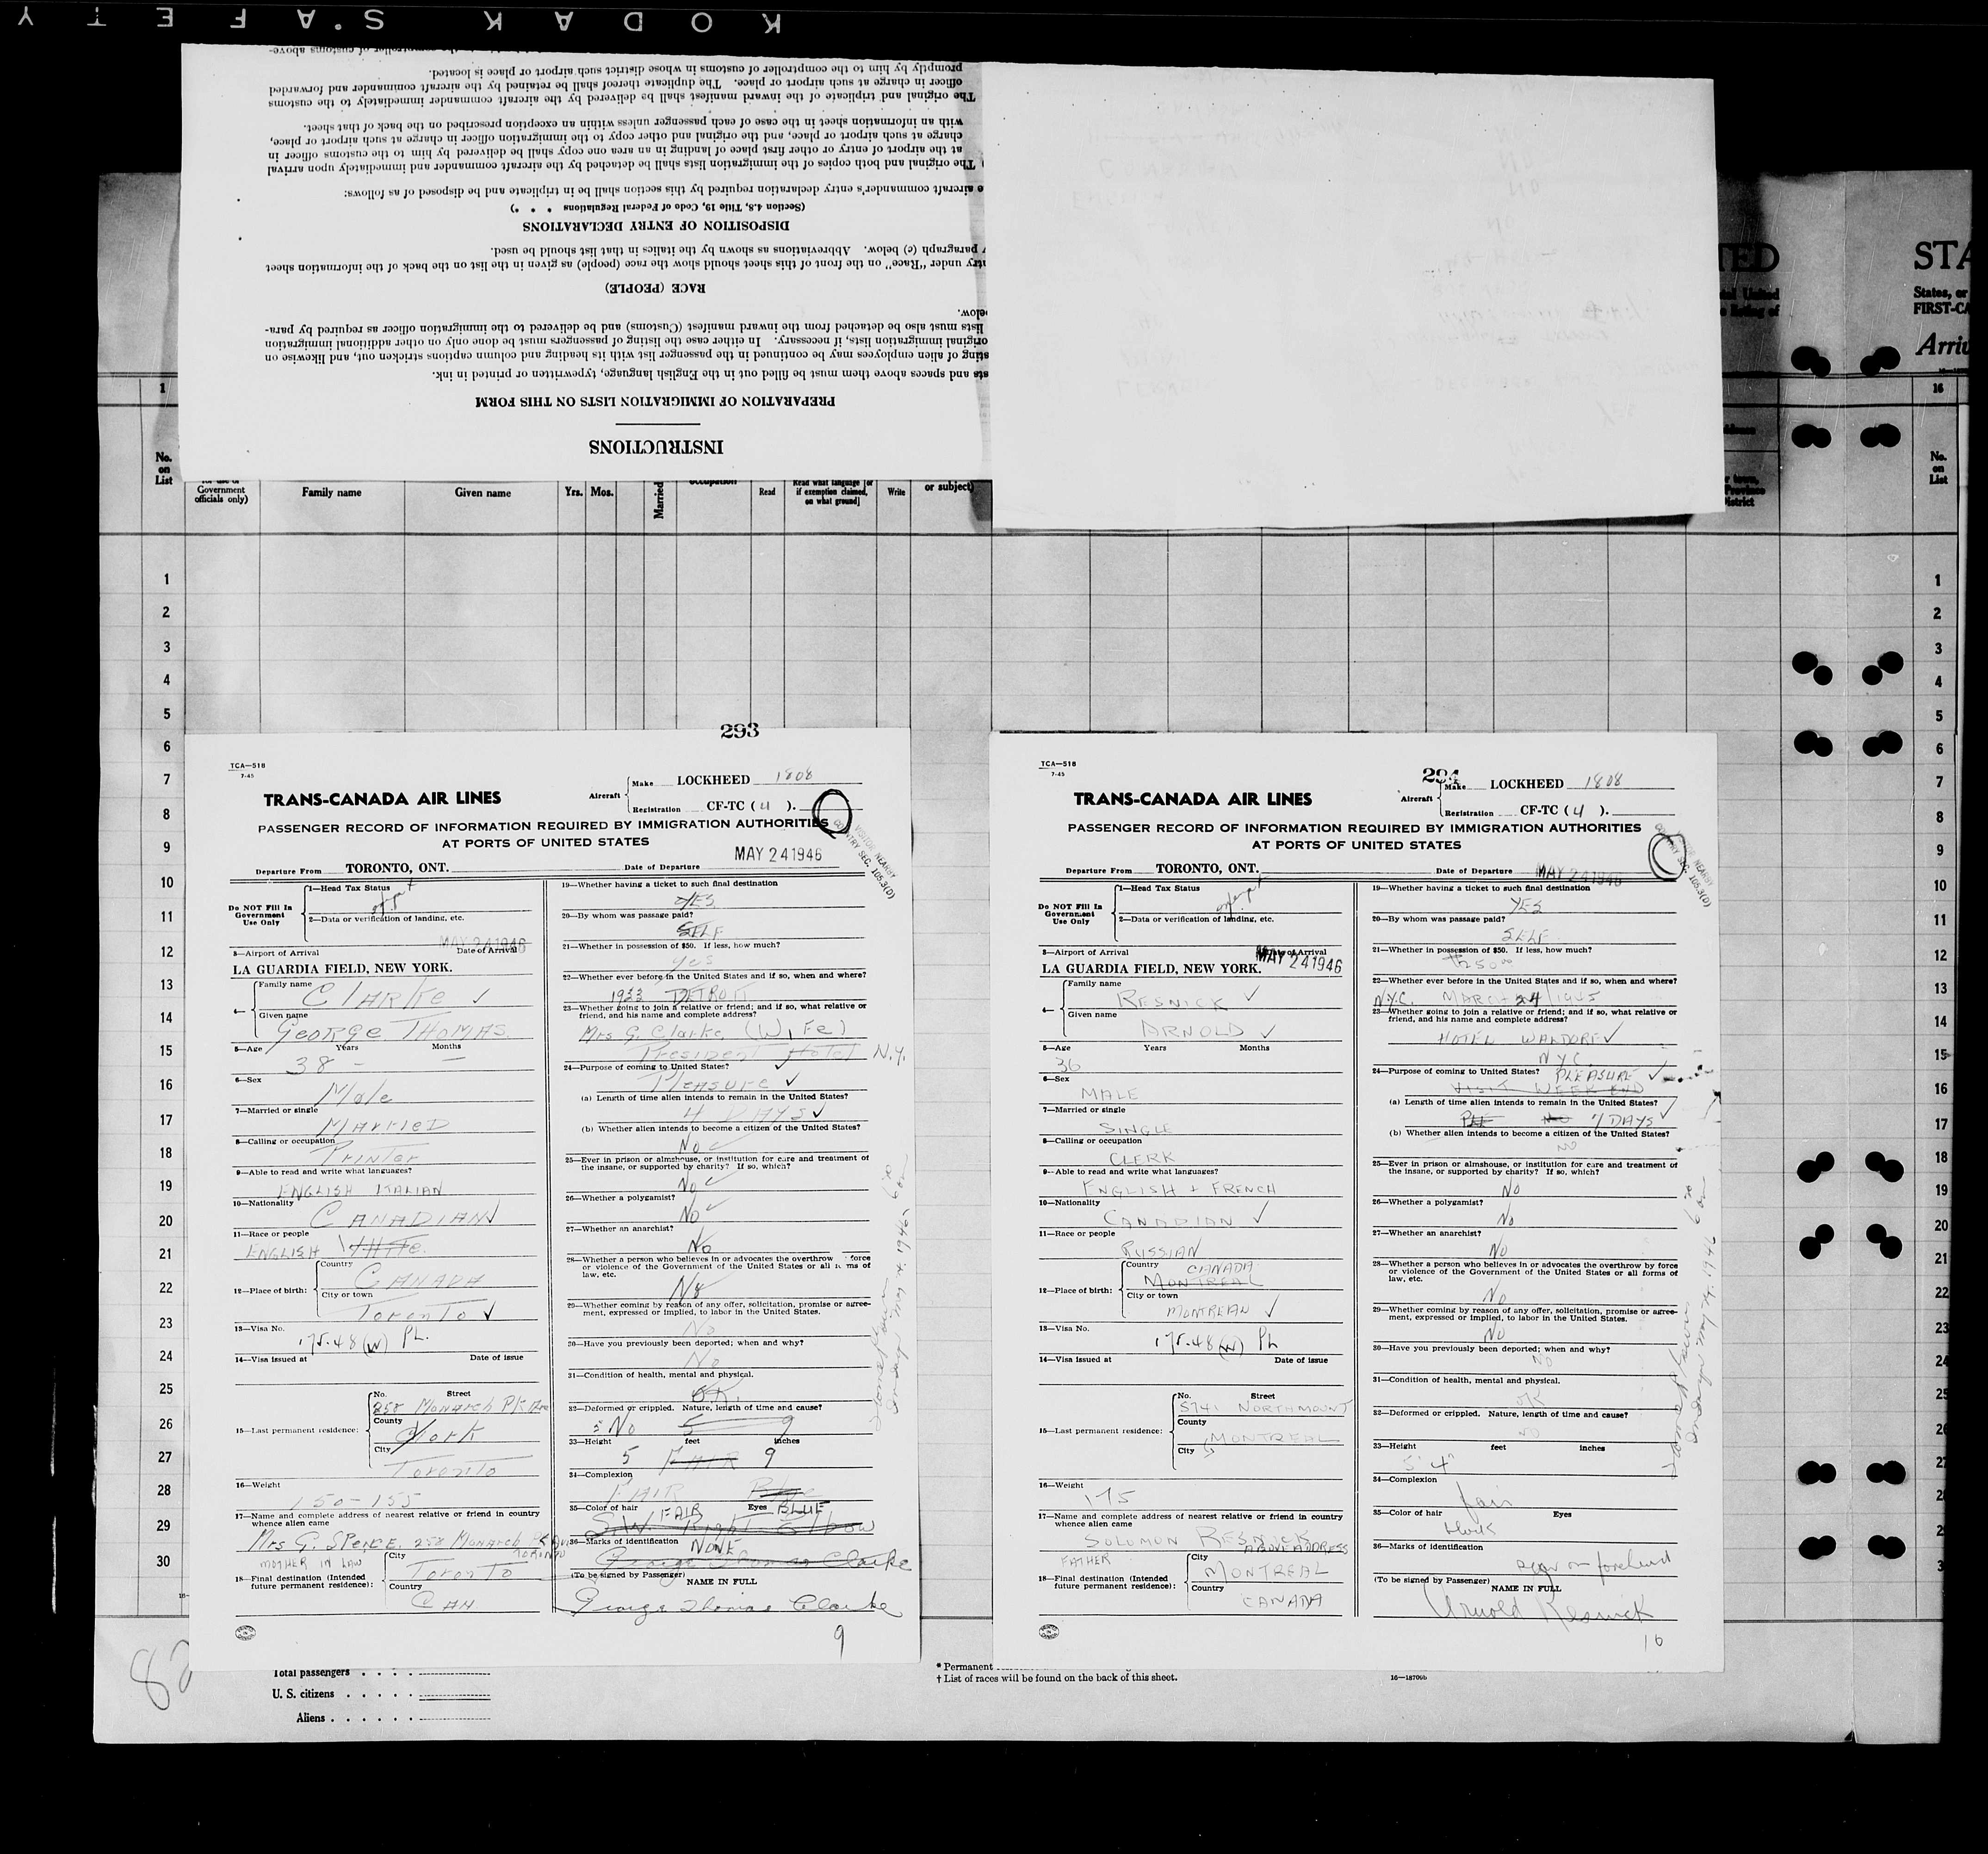 KODAK S.A F E T Y
INSTRUCTIONS
PREPARATION OF IMMIGRATION LISTS ON THIS FORM
sts and spaces above them must be filled out in the English language, typewritten or printed in ink.
sting of alien employees may be continued in the passenger list with its heading and column captions stricken out, and likewise on
original immigration lists, if necessary. In either case the listing of passengers must be done only on other additional immigration
lists must also be detached from the inward manifest (Customs) and be delivered to the immigration officer as required by para-
below.
RACE (PEOPLE)
try under "Race" on the front of this sheet should show the race (people) as given in the list on the back of the information sheet
paragraph (c) below. Abbreviations as shown by the italics in that list should be used.
DISPOSITION OF ENTRY DECLARATIONS
(Section 4.8, Title 19, Code of Federal Regulations * * *)
e aircraft commander's entry declaration required by this section shall be in triplicate and be disposed of as follows:
) The original and both copies of the immigration lists shall be detached by the aircraft commander and immediately upon arrival
at the airport of entry or other first place of landing in an area one copy shall be delivered by him to the customs officer in
charge at such airport or place, and the original and other copy to the immigration officer in charge at such airport or place,
with an information sheet in the case of each passenger unless within an exception prescribed on the back of that sheet.
The original and triplicate of the inward manifest shall be delivered by the aircraft commander immediately to the customs
officer in charge at such airport or place. The duplicate thereof shall be retained by the aircraft commander and forwarded
promptly by him to the comptroller of customs in whose district such airport or place is located.
TED
STA
States, or
FIRST-CA
Arriv
1
16
No. on List
Government officials only)
Family name
Given name
Yrs.
Mos.
Married
occupation
Read
Read what language [or if exemption claimed, on what ground]
Write
or subject)
No. on List
1
2
3
4
5
6
7
8
9
10
11
12
13
14
15
16
17
18
19
20
21
22
23
24
25
26
27
28
29
30
293
TCA—518
7-45
TRANS-CANADA AIR LINES
Aircraft
Make LOCKHEED 1808
Registration CF-TC ( 4 ).
PASSENGER RECORD OF INFORMATION REQUIRED BY IMMIGRATION AUTHORITIES
AT PORTS OF UNITED STATES
Departure From TORONTO, ONT. Date of Departure MAY 24 1946
Do NOT Fill In Government Use Only
1—Head Tax Status
2—Data or verification of landing, etc.
3—Airport of Arrival
MAY 24 1946
Date of Arrival
LA GUARDIA FIELD, NEW YORK.
4—
Family name
CLARKE ✓
Given name
GEORGE THOMAS
5—Age Years Months
38 - —
6—Sex
Male
7—Married or single
MARRIED
8—Calling or occupation
Printer
9—Able to read and write what languages?
ENGLISH ITALIAN
10—Nationality
CANADIAN ✓
11—Race or people
ENGLISH WHITE
12—Place of birth:
Country
CANADA
City or town
Toronto ✓
13—Visa No.
175.48 (W) PL.
14—Visa issued at Date of issue
15—Last permanent residence:
No. Street
258 Monarch PK Ave
County
York
City
Toronto
16—Weight
150-155
17—Name and complete address of nearest relative or friend in country whence alien came
Mrs G. SPENCE. 258 Monarch PK Ave
TORONTO
MOTHER IN LAW
18—Final destination (Intended future permanent residence):
City
Toronto
Country
CAN
19—Whether having a ticket to such final destination
YES
20—By whom was passage paid?
SELF
21—Whether in possession of $50. If less, how much?
yes
22—Whether ever before in the United States and if so, when and where?
1933 DETROIT
23—Whether going to join a relative or friend; and if so, what relative or friend, and his name and complete address?
Mrs G. Clarke. (WIFE)
President Hotel N.Y.
24—Purpose of coming to United States?
Pleasure ✓
(a) Length of time alien intends to remain in the United States?
4 DAYS ✓
(b) Whether alien intends to become a citizen of the United States?
No
25—Ever in prison or almshouse, or institution for care and treatment of the insane, or supported by charity? If so, which?
No
26—Whether a polygamist?
No
27—Whether an anarchist?
No
28—Whether a person who believes in or advocates the overthrow force or violence of the Government of the United States or all forms of law, etc.
No
29—Whether coming by reason of any offer, solicitation, promise or agreement, expressed or implied, to labor in the United States.
No
30—Have you previously been deported; when and why?
No
31—Condition of health, mental and physical.
OK.
32—Deformed or crippled. Nature, length of time and cause?
No 5 9
33—Height feet inches
5 FAIR 9
34—Complexion
FAIR Blue
35—Color of hair FAIR Eyes BLUE
S.W. Right Elbow
36—Marks of identification NONE
George Thomas Clarke
(To be signed by Passenger)
NAME IN FULL
George Thomas Clarke
9
294
TCA—518
7-45
TRANS-CANADA AIR LINES
Aircraft
Make LOCKHEED 1808
Registration CF-TC ( 4 ).
PASSENGER RECORD OF INFORMATION REQUIRED BY IMMIGRATION AUTHORITIES
AT PORTS OF UNITED STATES
Departure From TORONTO, ONT. Date of Departure MAY 24 1946
Do NOT Fill In Government Use Only
1—Head Tax Status
2—Data or verification of landing, etc.
3—Airport of Arrival
Date of Arrival
MAY 24 1946
LA GUARDIA FIELD, NEW YORK.
4—
Family name
RESNICK ✓
Given name
ARNOLD ✓
5—Age Years Months
36
6—Sex
MALE
7—Married or single
SINGLE
8—Calling or occupation
CLERK
9—Able to read and write what languages?
ENGLISH + FRENCH
10—Nationality
CANADIAN ✓
11—Race or people
RUSSIAN
12—Place of birth:
Country CANADA
MONTREAL
City or town
MONTREAL ✓
13—Visa No.
175.48 (W) PL
14—Visa issued at Date of issue
15—Last permanent residence:
No. Street
5741 NORTHMOUNT
County
MONTREAL
City
16—Weight
175
17—Name and complete address of nearest relative or friend in country whence alien came
SOLOMON RESNICK
ABOVE ADDRESS
FATHER
18—Final destination (Intended future permanent residence):
City
MONTREAL
Country
CANADA
19—Whether having a ticket to such final destination
YES
20—By whom was passage paid?
SELF
21—Whether in possession of $50. If less, how much?
$250.00
22—Whether ever before in the United States and if so, when and where?
N.Y.C. MARCH 24/1945
23—Whether going to join a relative or friend; and if so, what relative or friend, and his name and complete address?
HOTEL WALDORF ✓
NYC
24—Purpose of coming to United States? PLEASURE ✓
VISIT WEEK END
(a) Length of time alien intends to remain in the United States?
7 DAYS ✓
(b) Whether alien intends to become a citizen of the United States?
NO
25—Ever in prison or almshouse, or institution for care and treatment of the insane, or supported by charity? If so, which?
No
26—Whether a polygamist?
No
27—Whether an anarchist?
No
28—Whether a person who believes in or advocates the overthrow by force or violence of the Government of the United States or all forms of law, etc.
No
29—Whether coming by reason of any offer, solicitation, promise or agreement, expressed or implied, to labor in the United States.
No
30—Have you previously been deported; when and why?
NO
31—Condition of health, mental and physical.
OK
32—Deformed or crippled. Nature, length of time and cause?
NO
33—Height feet inches
5' 4"
34—Complexion
fair
35—Color of hair Eyes
36—Marks of identification
scar on forehead
(To be signed by Passenger)
NAME IN FULL
Arnold Resnick
10
82
Total passengers . . . .
U. S. citizens . . . . .
Aliens . . . . . .
* Permanent
† List of races will be found on the back of this sheet.
16—18706b